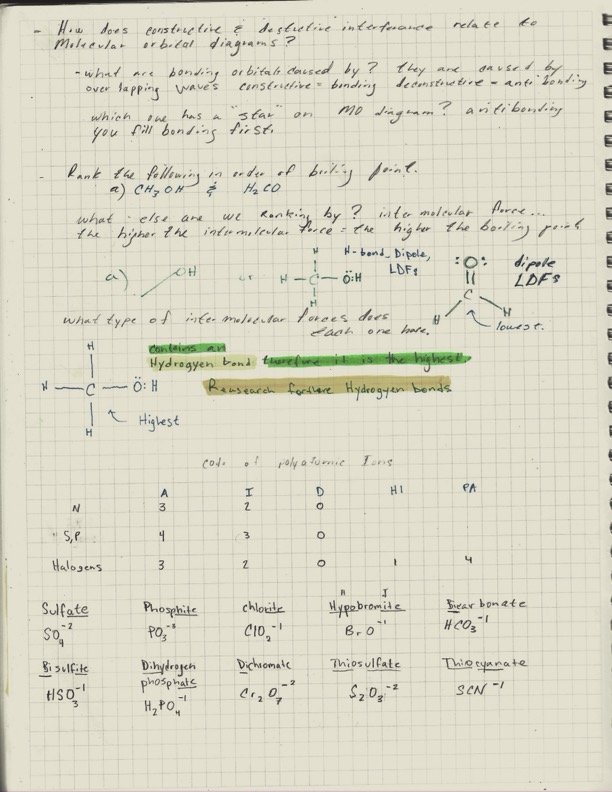 - How does constructive & destructive interference relate to
Molecular orbital diagrams?
- what are bonding orbitals caused by? they are caused by
over lapping waves constructive = bonding deconstructive = anti bonding
which one has a "star" on MO diagram? antibonding
you fill bonding first.
- Rank the following in order of boiling point.
a) CH3OH & H2CO
what else are we Ranking by? inter molecular force...
the higher the intermolecular force = the higher the boiling point
a) OH or H H - C - Ö: H H
H-bond, Dipole,
LDFs
:O:
C
H H
dipole
LDFs
lowest.
what type of inter molecular forces does
each one have.
H
H - C - Ö: H
H
Highest
contains an
Hydrogyen bond therefore it is the highest.
Reasearch Hydrogyen bonds
code of polyatomic Ions
A I D HI PA
N 3 2 0
S,P 4 3 0
Halogens 3 2 0 1 4
Sulfate Phosphite chlorite Hypobromite Bicarbonate
H I
SO4-2 PO3-3 ClO2-1 BrO-1 HCO3-1
Bisulfite Dihydrogen Dichromate Thiosulfate Thiocyanate
phosphate
HSO3-1 H2PO4-1 Cr2O7-2 S2O3-2 SCN-1